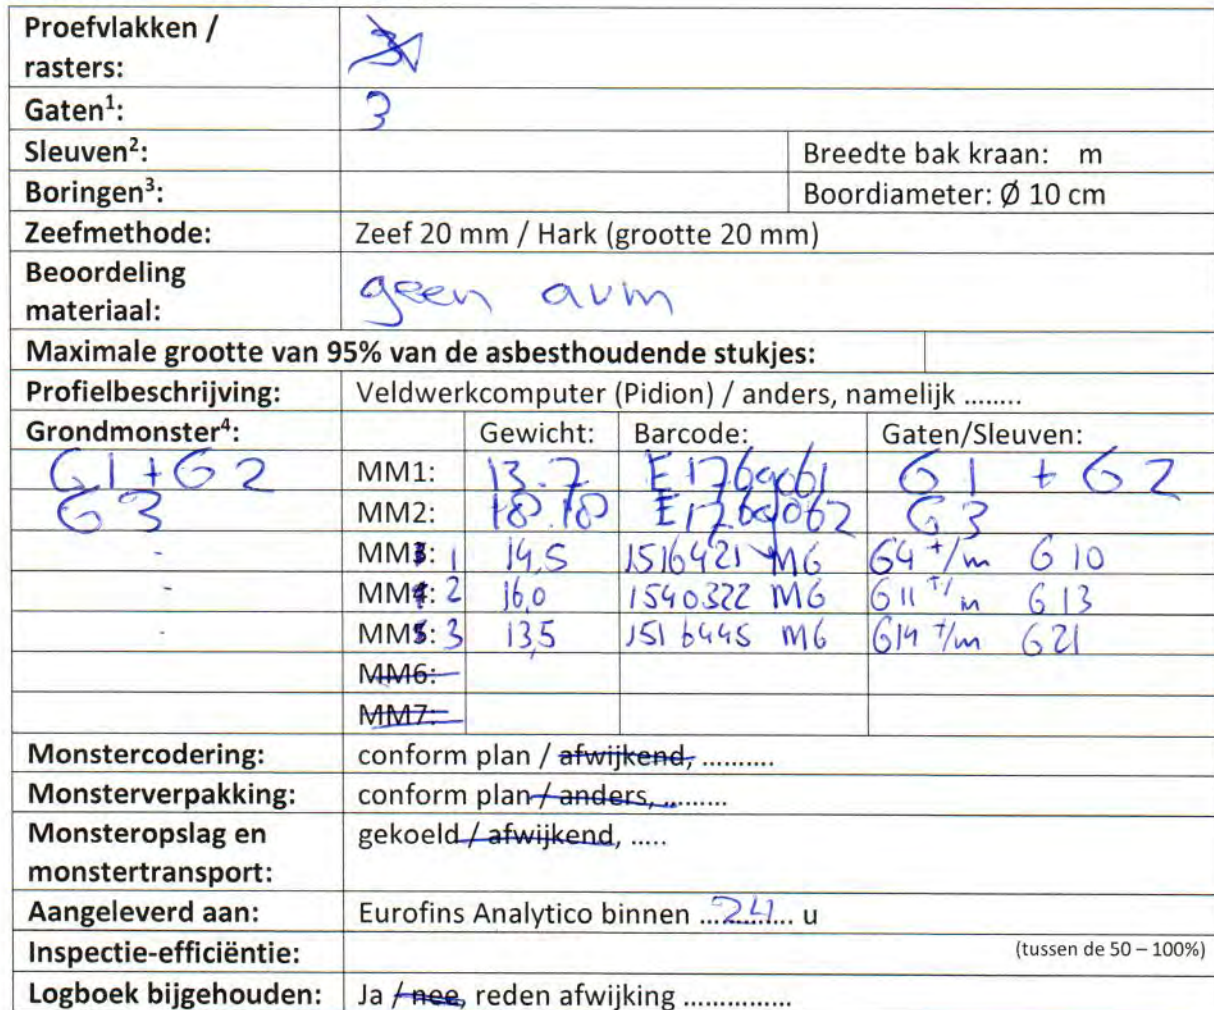 Proefvlakken /
rasters:
Gaten¹: 3
Sleuven²: Breedte bak kraan: m
Boringen³: Boordiameter: Ø 10 cm
Zeefmethode: Zeef 20 mm / Hark (grootte 20 mm)
Beoordeling
materiaal: geen avm
Maximale grootte van 95% van de asbesthoudende stukjes:
Profielbeschrijving: Veldwerkcomputer (Pidion) / anders, namelijk ........
Grondmonster⁴: Gewicht: Barcode: Gaten/Sleuven:
G1+G2 MM1: 13.7 E1769061 G1 + G2
G3 MM2: 18.18 E1769062 G3
- MM3: 1 14,5 1516421 MG G4 t/m G10
- MM4: 2 16,0 1540322 MG G11 t/m G13
- MM5: 3 13,5 1516445 MG G14 t/m G21
MM6:
MM7:
Monstercodering: conform plan / afwijkend, ..........
Monsterverpakking: conform plan / anders, .........
Monsteropslag en gekoeld / afwijkend, .....
monstertransport:
Aangeleverd aan: Eurofins Analytico binnen ...24... u
Inspectie-efficiëntie: (tussen de 50 – 100%)
Logboek bijgehouden: Ja / nee, reden afwijking ...............